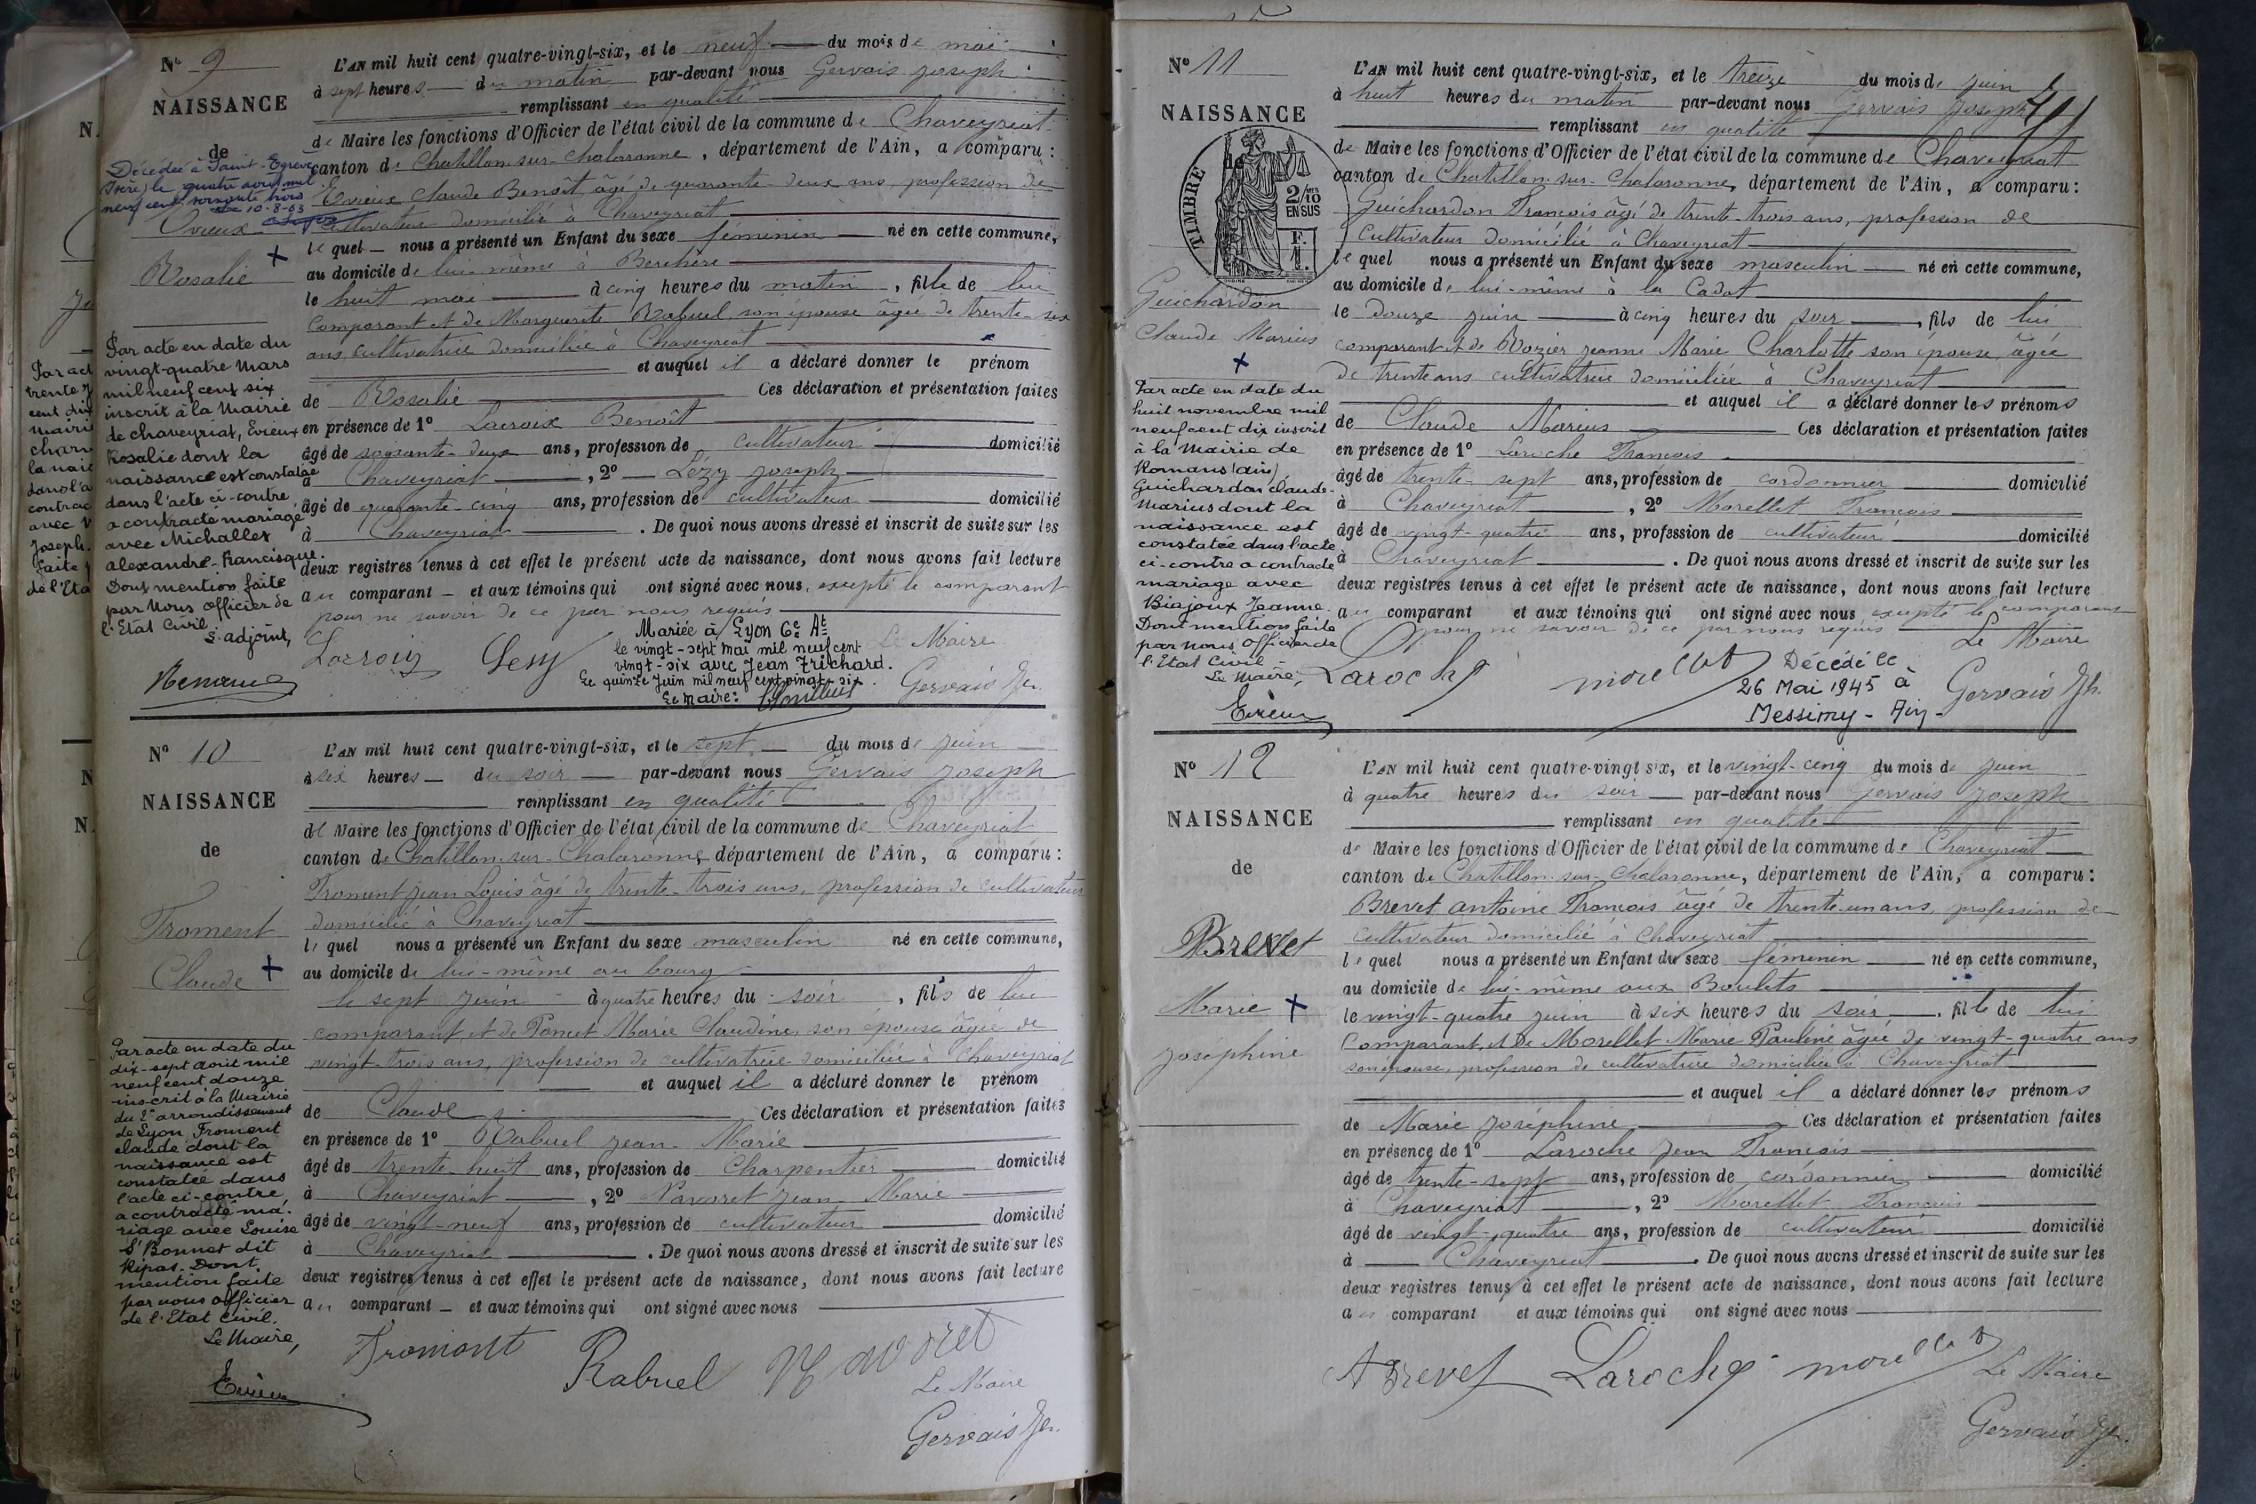 N° 9
NAISSANCE
de
Décédée à Saint-Egrève
(Isère) le quatre avril mil
neuf cent soixante trois
10-8-63
Evieux
Rosalie
Par acte en date du
vingt-quatre Mars
mil neuf cent six
inscrit à la Mairie
de chaveyriat, Evieux
Rosalie dont la
naissance est constatée
dans l'acte ci-contre
a contracté mariage
avec Michallet
alexandre-Francisque.
Dont mention faite
par Nous officier de
l'Etat Civil
L'adjoint,
L'AN mil huit cent quatre-vingt-six, et le neuf du mois de mai
à sept heures du matin par-devant nous Gervais Joseph
remplissant en qualité
de Maire les fonctions d'Officier de l'état civil de la commune de Chaveyriat
canton de Chatillon-sur-Chalaronne, département de l'Ain, a comparu :
Evieux Claude Benoît âgé de quarante-deux ans, profession de
cultivateur domicilié à Chaveyriat
lequel nous a présenté un Enfant du sexe féminin né en cette commune,
au domicile de lui-même à Berchère
le huit mai à cinq heures du matin, fille de lui
comparant et de Marguerite Rabuel son épouse âgée de trente-six
ans cultivatrice domiciliée à Chaveyriat
et auquel il a déclaré donner le prénom
de Rosalie Ces déclaration et présentation faites
en présence de 1° Lacroix Benoît
âgé de soixante-deux ans, profession de cultivateur domicilié
à Chaveyriat, 2° Lézy Joseph
âgé de quarante-cinq ans, profession de cultivateur domicilié
à Chaveyriat. De quoi nous avons dressé et inscrit de suite sur les
deux registres tenus à cet effet le présent acte de naissance, dont nous avons fait lecture
au comparant et aux témoins qui ont signé avec nous, excepté le comparant
pour ne savoir de ce par nous requis
Lacroix Lesy Le Maire
Gervais Jh.
Mariée à Lyon 6e At
le vingt-sept mai mil neuf cent
vingt-six avec Jean Trichard.
Le quinze Juin mil neuf cent vingt-six.
Le Maire:
N° 10
NAISSANCE
de
Froment
Claude
Par acte en date du
dix-sept août mil
neuf cent douze
inscrit à la Mairie
du 2e arrondissement
de Lyon Froment
claude dont la
naissance est
constatée dans
l'acte ci-contre,
a contracté ma-
riage avec Louise
Bonnat dit
Ripas. Dont
mention faite
par nous officier
de l'Etat Civil.
Le Maire,
Evieux
L'AN mil huit cent quatre-vingt-six, et le sept du mois de juin
à six heures du soir par-devant nous Gervais Joseph
remplissant en qualité
de Maire les fonctions d'Officier de l'état civil de la commune de Chaveyriat
canton de Chatillon-sur-Chalaronne, département de l'Ain, a comparu :
Froment Jean Louis âgé de trente-trois ans, profession de cultivateur
domicilié à Chaveyriat
lequel nous a présenté un Enfant du sexe masculin né en cette commune,
au domicile de lui-même au bourg
le sept juin à quatre heures du soir, fils de lui
comparant et de Poncet Marie Claudine son épouse âgée de
vingt-trois ans, profession de cultivatrice domiciliée à Chaveyriat
et auquel il a déclaré donner le prénom
de Claude Ces déclaration et présentation faites
en présence de 1° Rabuel Jean-Marie
âgé de trente-huit ans, profession de Charpentier domicilié
à Chaveyriat, 2° Navoret Jean-Marie
âgé de vingt-neuf ans, profession de cultivateur domicilié
à Chaveyriat. De quoi nous avons dressé et inscrit de suite sur les
deux registres tenus à cet effet le présent acte de naissance, dont nous avons fait lecture
au comparant et aux témoins qui ont signé avec nous
Fromont Rabuel Navoret
Le Maire
Gervais Jh.
N° 11
NAISSANCE
de
TIMBRE
2/10 EN SUS
F.
1.
Guichardon
Claude Marius
Par acte en date du
huit novembre mil
neuf cent dix inscrit
à la Mairie de
Romans (ain)
Guichardon claude-
Marius dont la
naissance est
constatée dans l'acte
ci-contre a contracté
mariage avec
Biajoux Jeanne.
Dont mention faite
par nous Officier de
l'Etat Civil
Le Maire,
Evieux
L'AN mil huit cent quatre-vingt-six, et le treize du mois de juin
à huit heures du matin par-devant nous Gervais Joseph
remplissant en qualité
de Maire les fonctions d'Officier de l'état civil de la commune de Chaveyriat
canton de Chatillon-sur-Chalaronne, département de l'Ain, a comparu :
Guichardon François âgé de trente-trois ans, profession de
cultivateur domicilié à Chaveyriat
lequel nous a présenté un Enfant du sexe masculin né en cette commune,
au domicile de lui-même à la Cadot
le douze juin à cinq heures du soir, fils de lui
comparant et de Rozier Jeanne Marie Charlotte son épouse, âgée
de trente ans cultivatrice domiciliée à Chaveyriat
et auquel il a déclaré donner les prénoms
de Claude Marius Ces déclaration et présentation faites
en présence de 1° Laroche François
âgé de trente-sept ans, profession de cordonnier domicilié
à Chaveyriat, 2° Morellet François
âgé de vingt-quatre ans, profession de cultivateur domicilié
à Chaveyriat. De quoi nous avons dressé et inscrit de suite sur les
deux registres tenus à cet effet le présent acte de naissance, dont nous avons fait lecture
au comparant et aux témoins qui ont signé avec nous excepté le comparant
pour ne savoir de ce par nous requis
Laroche morellet Le Maire
Gervais Jh.
Décédé le
26 Mai 1945 à
Messimy - Ain -
N° 12
NAISSANCE
de
Brevet
Marie
Joséphine
L'AN mil huit cent quatre-vingt six, et le vingt-cinq du mois de juin
à quatre heures du soir par-devant nous Gervais Joseph
remplissant en qualité
de Maire les fonctions d'Officier de l'état civil de la commune de Chaveyriat
canton de Chatillon-sur-Chalaronne, département de l'Ain, a comparu :
Brevet antoine François âgé de trente-un ans, profession de
cultivateur domicilié à Chaveyriat
lequel nous a présenté un Enfant du sexe féminin né en cette commune,
au domicile de lui-même aux Boulets
le vingt-quatre juin à six heures du soir, fille de lui
comparant, et de Morellet Marie Pauline âgée de vingt-quatre ans
son épouse, profession de cultivatrice domiciliée à Chaveyriat
et auquel il a déclaré donner les prénoms
de Marie Joséphine Ces déclaration et présentation faites
en présence de 1° Laroche Jean François
âgé de trente-sept ans, profession de cordonnier domicilié
à Chaveyriat, 2° Morellet François
âgé de vingt-quatre ans, profession de cultivateur domicilié
à Chaveyriat. De quoi nous avons dressé et inscrit de suite sur les
deux registres tenus à cet effet le présent acte de naissance, dont nous avons fait lecture
au comparant et aux témoins qui ont signé avec nous
A Brevet Laroche morellet Le Maire
Gervais Jh.